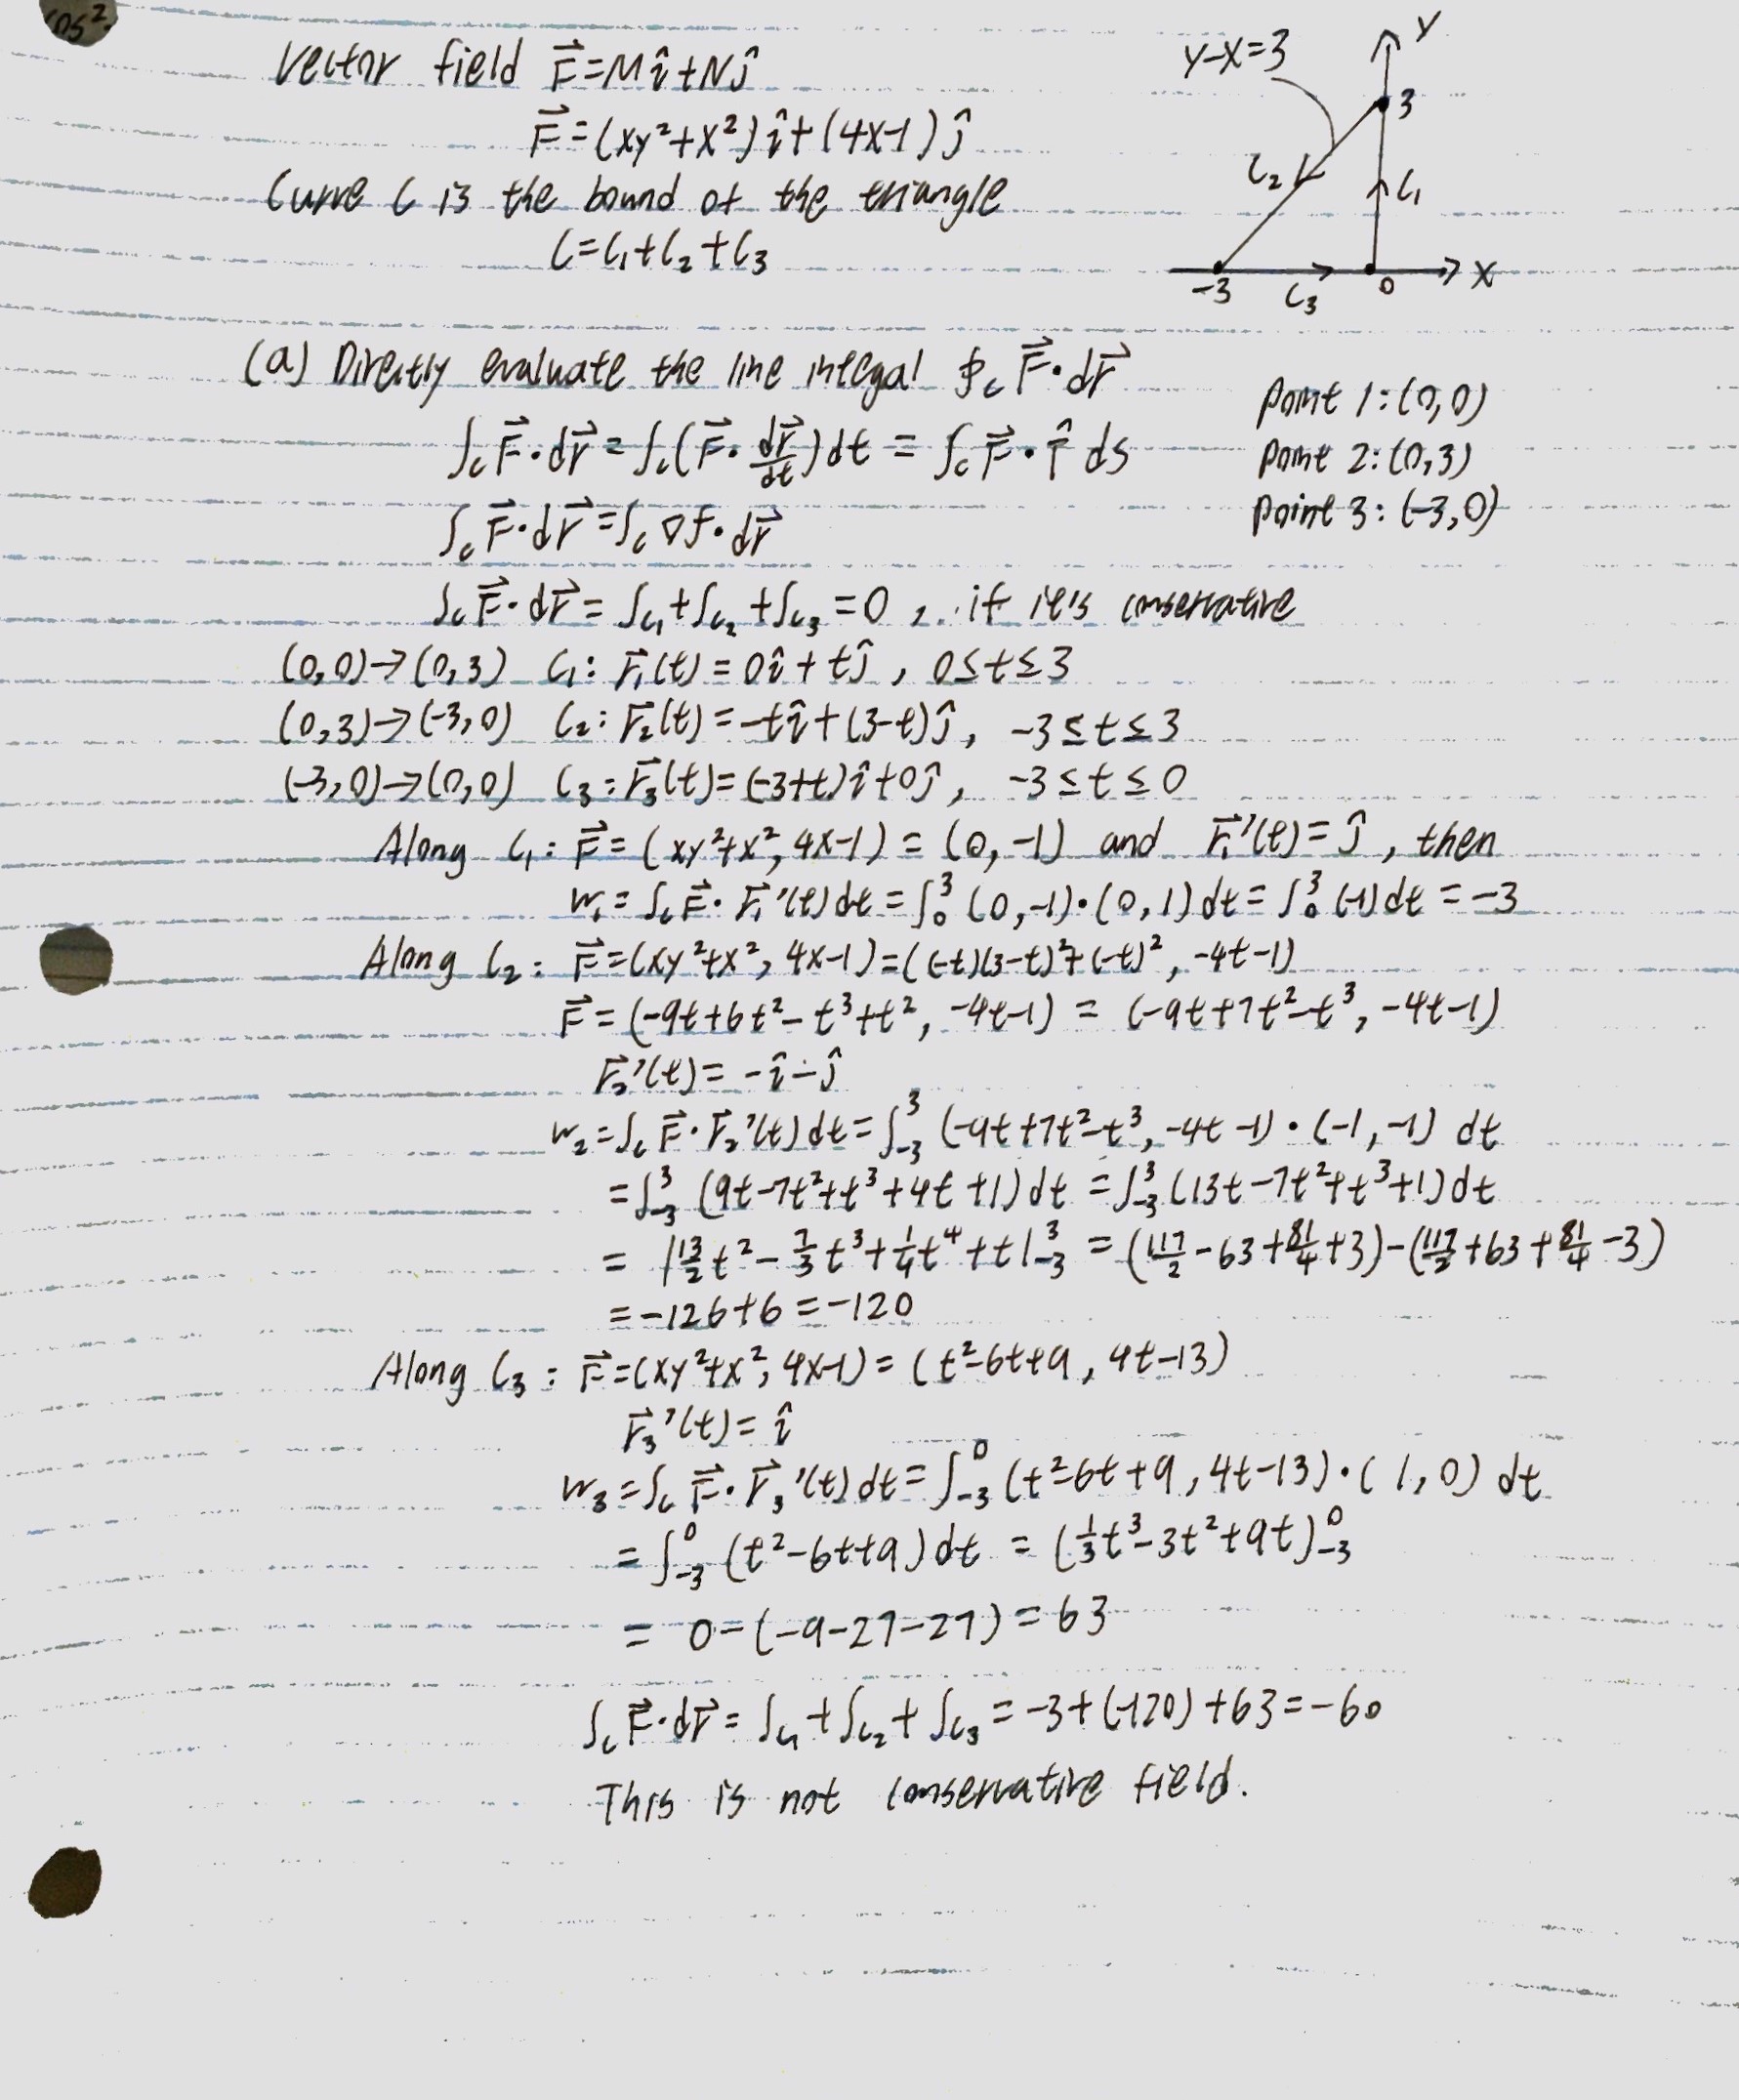 cos²
Vector field F⃗=Mî+Nĵ
F⃗=(xy²+x²)î+(4x-1)ĵ
Curve C is the bound of the triangle
C=C₁+C₂+C₃
Y
y-x=3
3
C₂
C₁
-3
C₃
0
X
(a) Directly evaluate the line integal ∮c F⃗·dr⃗
Point 1:(0,0)
∫c F⃗·dr⃗=∫c(F⃗·dr⃗/dt)dt = ∫c F⃗·T̂ ds
Point 2:(0,3)
Point 3:(-3,0)
∫c F⃗·dr⃗=∫c ∇f·dr⃗
∫c F⃗·dr⃗= ∫c₁+∫c₂+∫c₃=0, if it's conservative
(0,0)→(0,3) C₁: r⃗₁(t)=0î+tĵ, 0≤t≤3
(0,3)→(-3,0) C₂: r⃗₂(t)=-tî+(3-t)ĵ, -3≤t≤3
(-3,0)→(0,0) C₃: r⃗₃(t)=(-3+t)î+0ĵ, -3≤t≤0
Along C₁: F⃗=(xy²+x², 4x-1)=(0,-1) and r⃗₁'(t)=ĵ, then
W₁=∫c F⃗·r⃗₁'(t)dt=∫₀³(0,-1)·(0,1)dt=∫₀³(-1)dt=-3
Along C₂: F⃗=(xy²+x², 4x-1)=((-t)(3-t)²+(-t)², -4t-1)
F⃗=(-9t+6t²-t³+t², -4t-1) = (-9t+7t²-t³, -4t-1)
r⃗₂'(t)=-î-ĵ
W₂=∫c F⃗·r⃗₂'(t)dt=∫₋₃³(-9t+7t²-t³, -4t-1)·(-1,-1) dt
=∫₋₃³(9t-7t²+t³+4t+1)dt=∫₋₃³(13t-7t²+t³+1)dt
= |13/2t²-7/3t³+1/4t⁴+t|₋₃³ = (117/2-63+81/4+3)-(117/2+63+81/4-3)
=-126+6=-120
Along C₃: F⃗=(xy²+x², 4x-1)=(t²-6t+9, 4t-13)
r⃗₃'(t)=î
W₃=∫c F⃗·r⃗₃'(t)dt=∫₋₃⁰(t²-6t+9, 4t-13)·(1,0) dt
=∫₋₃⁰(t²-6t+9)dt = (1/3t³-3t²+9t)₋₃⁰
= 0-(-9-27-27)=63
∫c F⃗·dr⃗=∫c₁+∫c₂+∫c₃=-3+(-120)+63=-60
This is not conservative field.